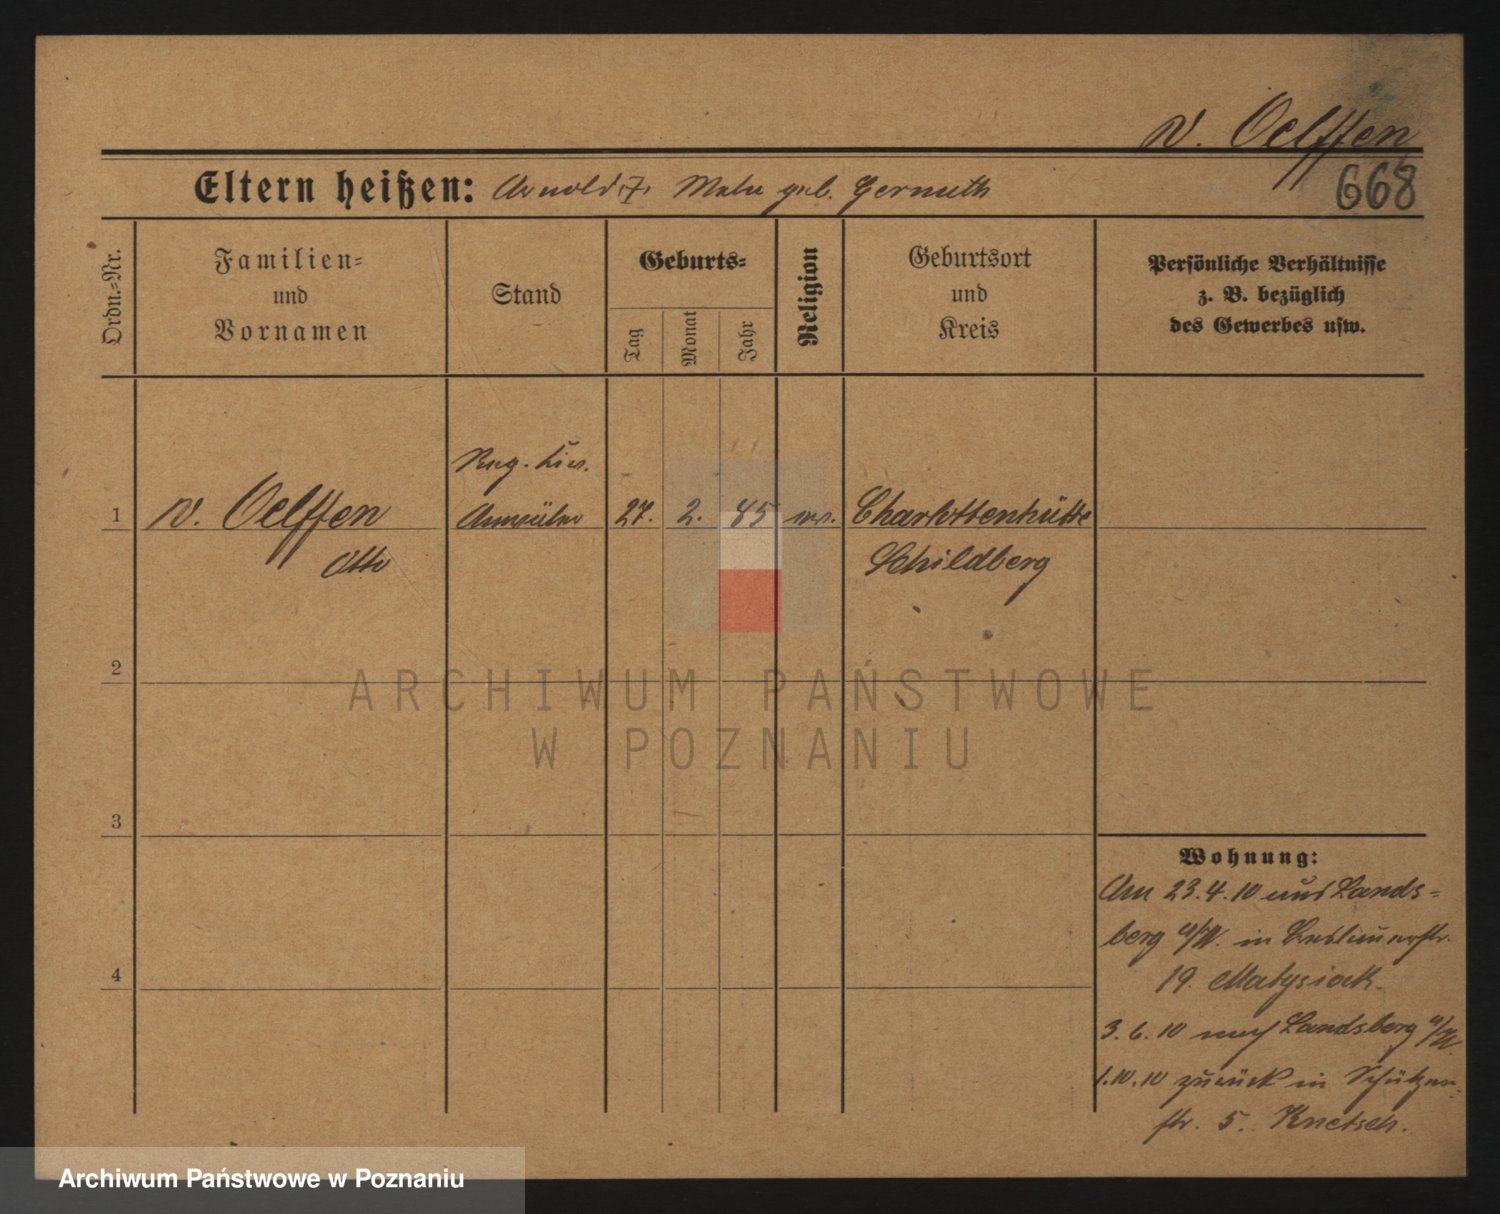 v. Oelffen
Eltern heißen: Arnold, Malw geb. Gernuth
668
Ordn.-Nr.
Familien-
und
Vornamen
Stand
Geburts-
Tag
Monat
Jahr
Religion
Geburtsort
und
Kreis
Persönliche Verhältnisse
z. B. bezüglich
des Gewerbes usw.
Reg. Ziv.
1
v. Oelffen
27.
2.
85
Charlottenhütte
Otto
Schildberg
2
ARCHIWUM PAŃSTWOWE
W POZNANIU
3
Wohnung:
Am 23.4.10 aus Lands-
berg a/W. in
19. Matysiak.
4
3.6.10 nach Landsberg a/W.
1.10.10 zurück in Schützen-
str. 5. Knetsch.
Archiwum Państwowe w Poznaniu